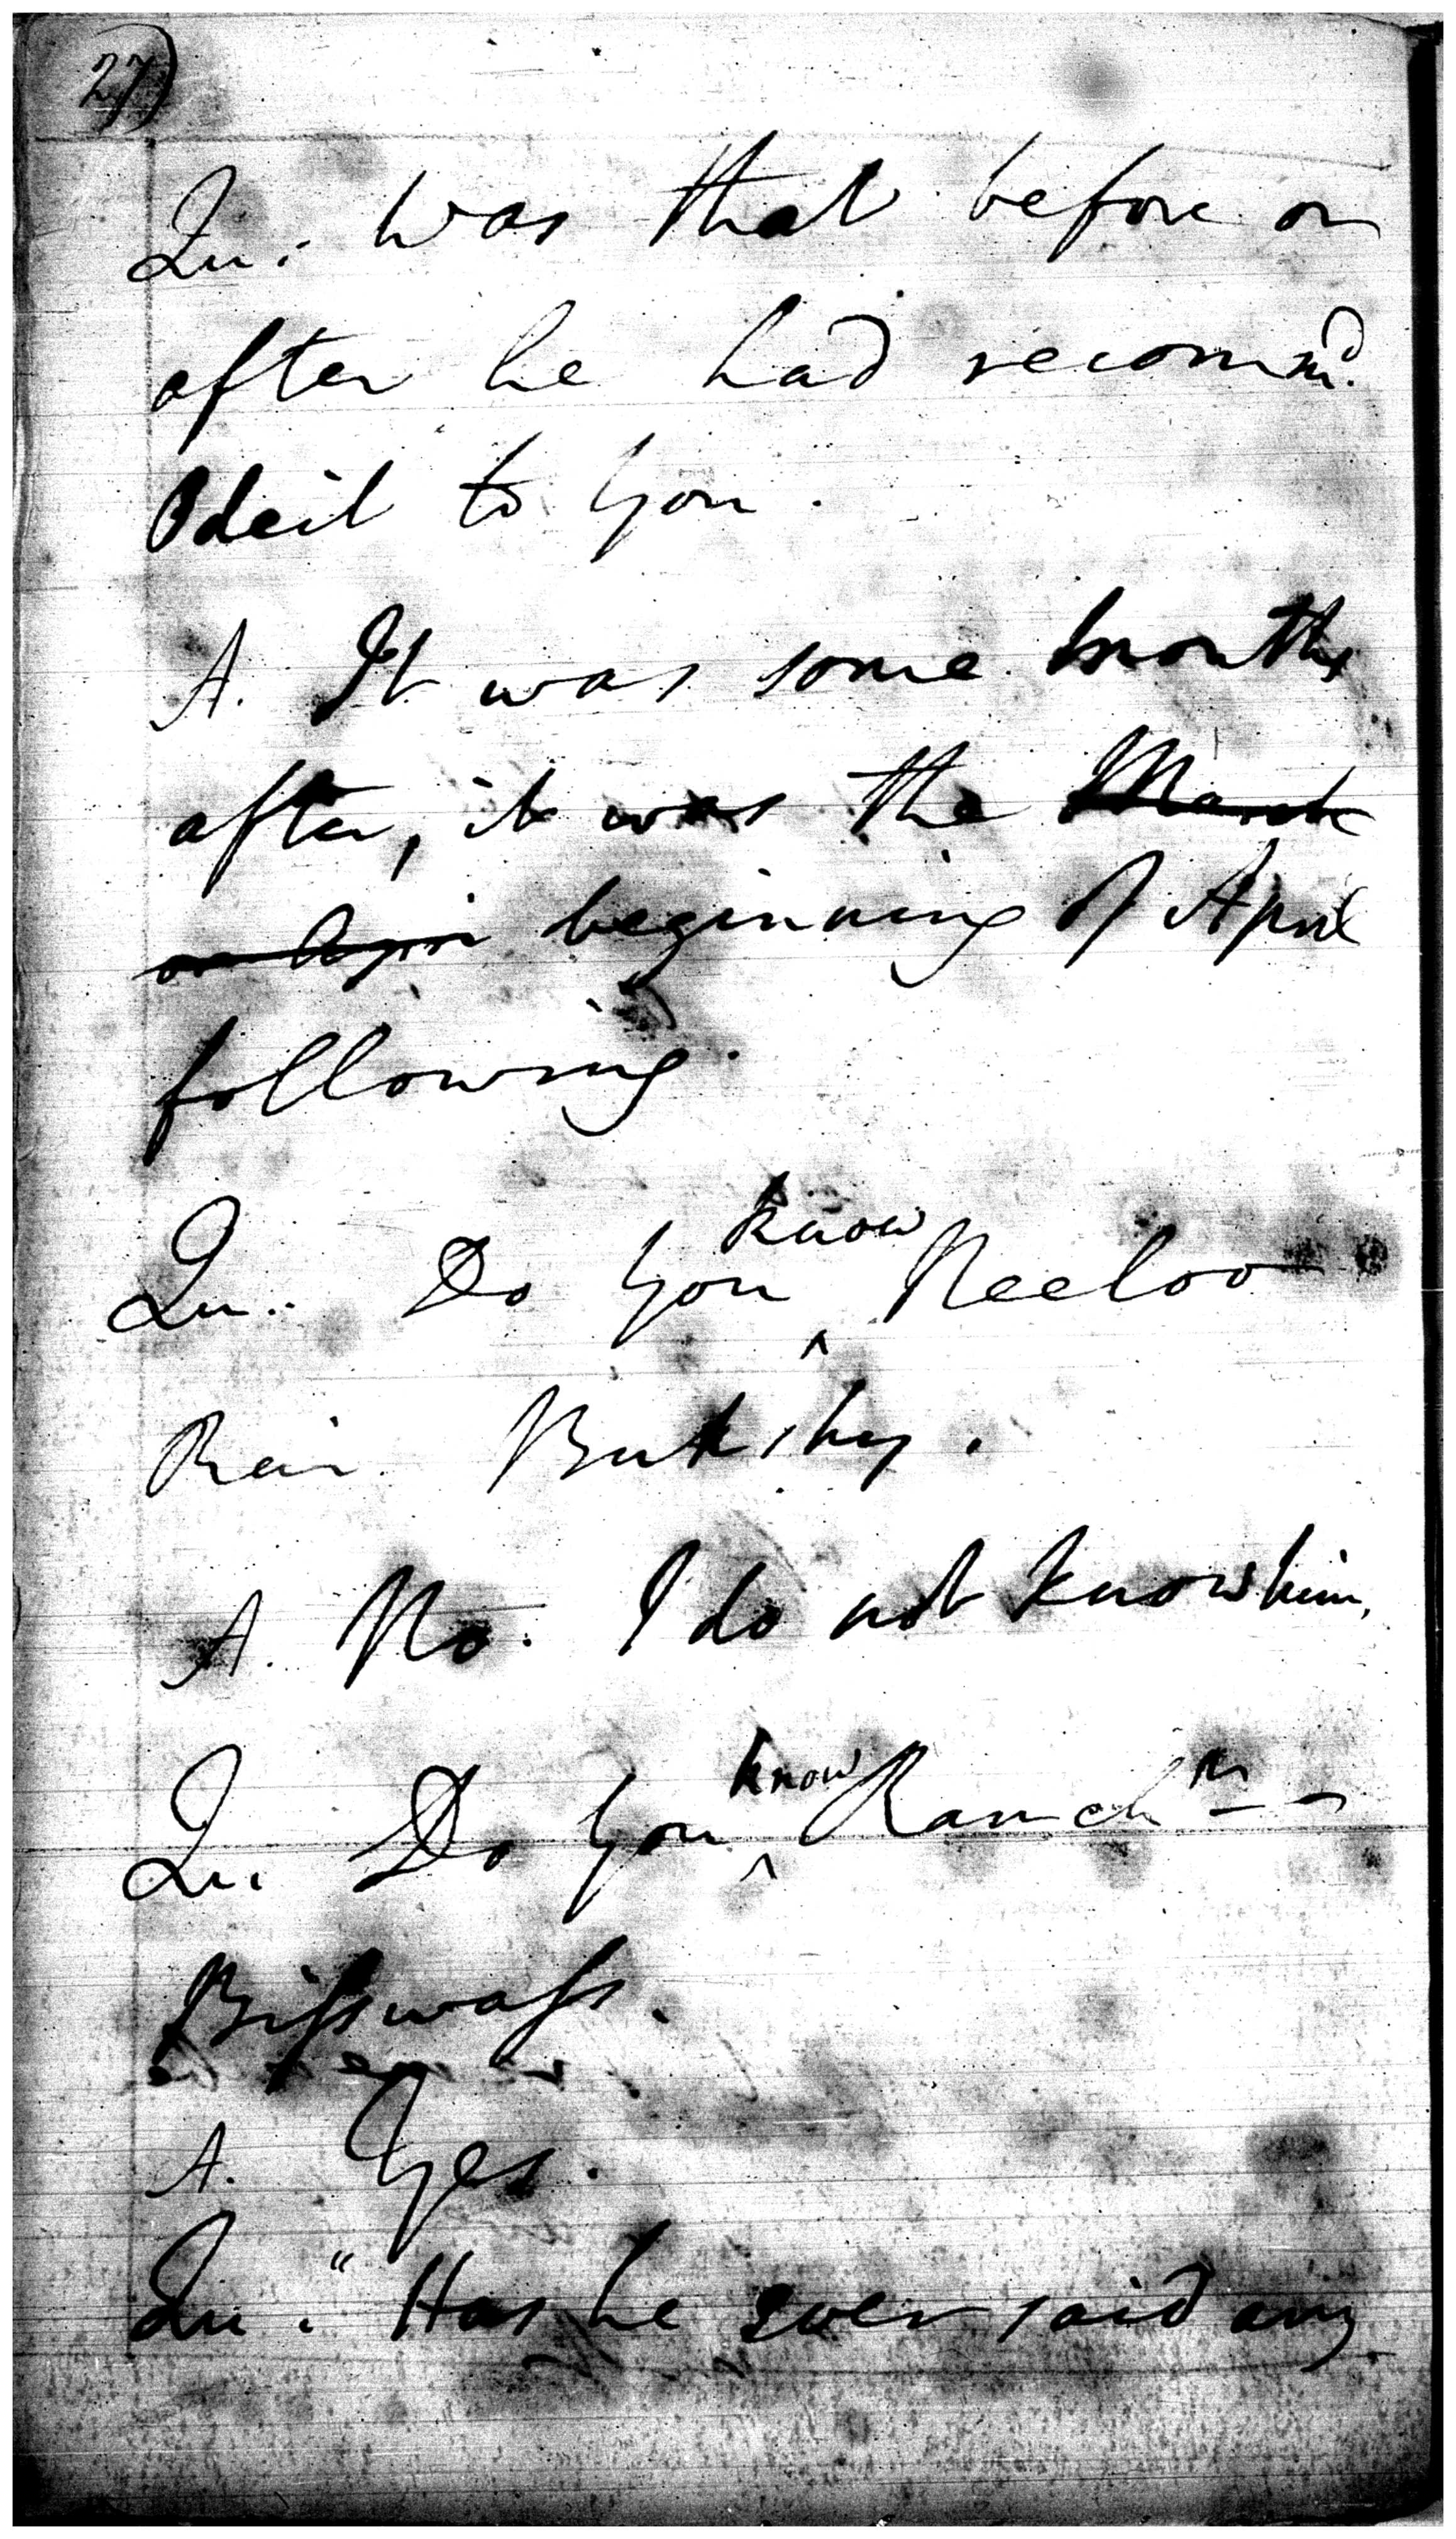 27)
Qu. was that before or
after he had recommd.
Odeit to you.
A. It was some months
after, it was the March
or Apri beginning of April
following.
Qu.. Do you know Neeloo
Rai Bukshy.
A. No. I do not know him.
Qu. Do you know Ramch
Bisswass.
A. Yes.
Qu. "Has he ever said any